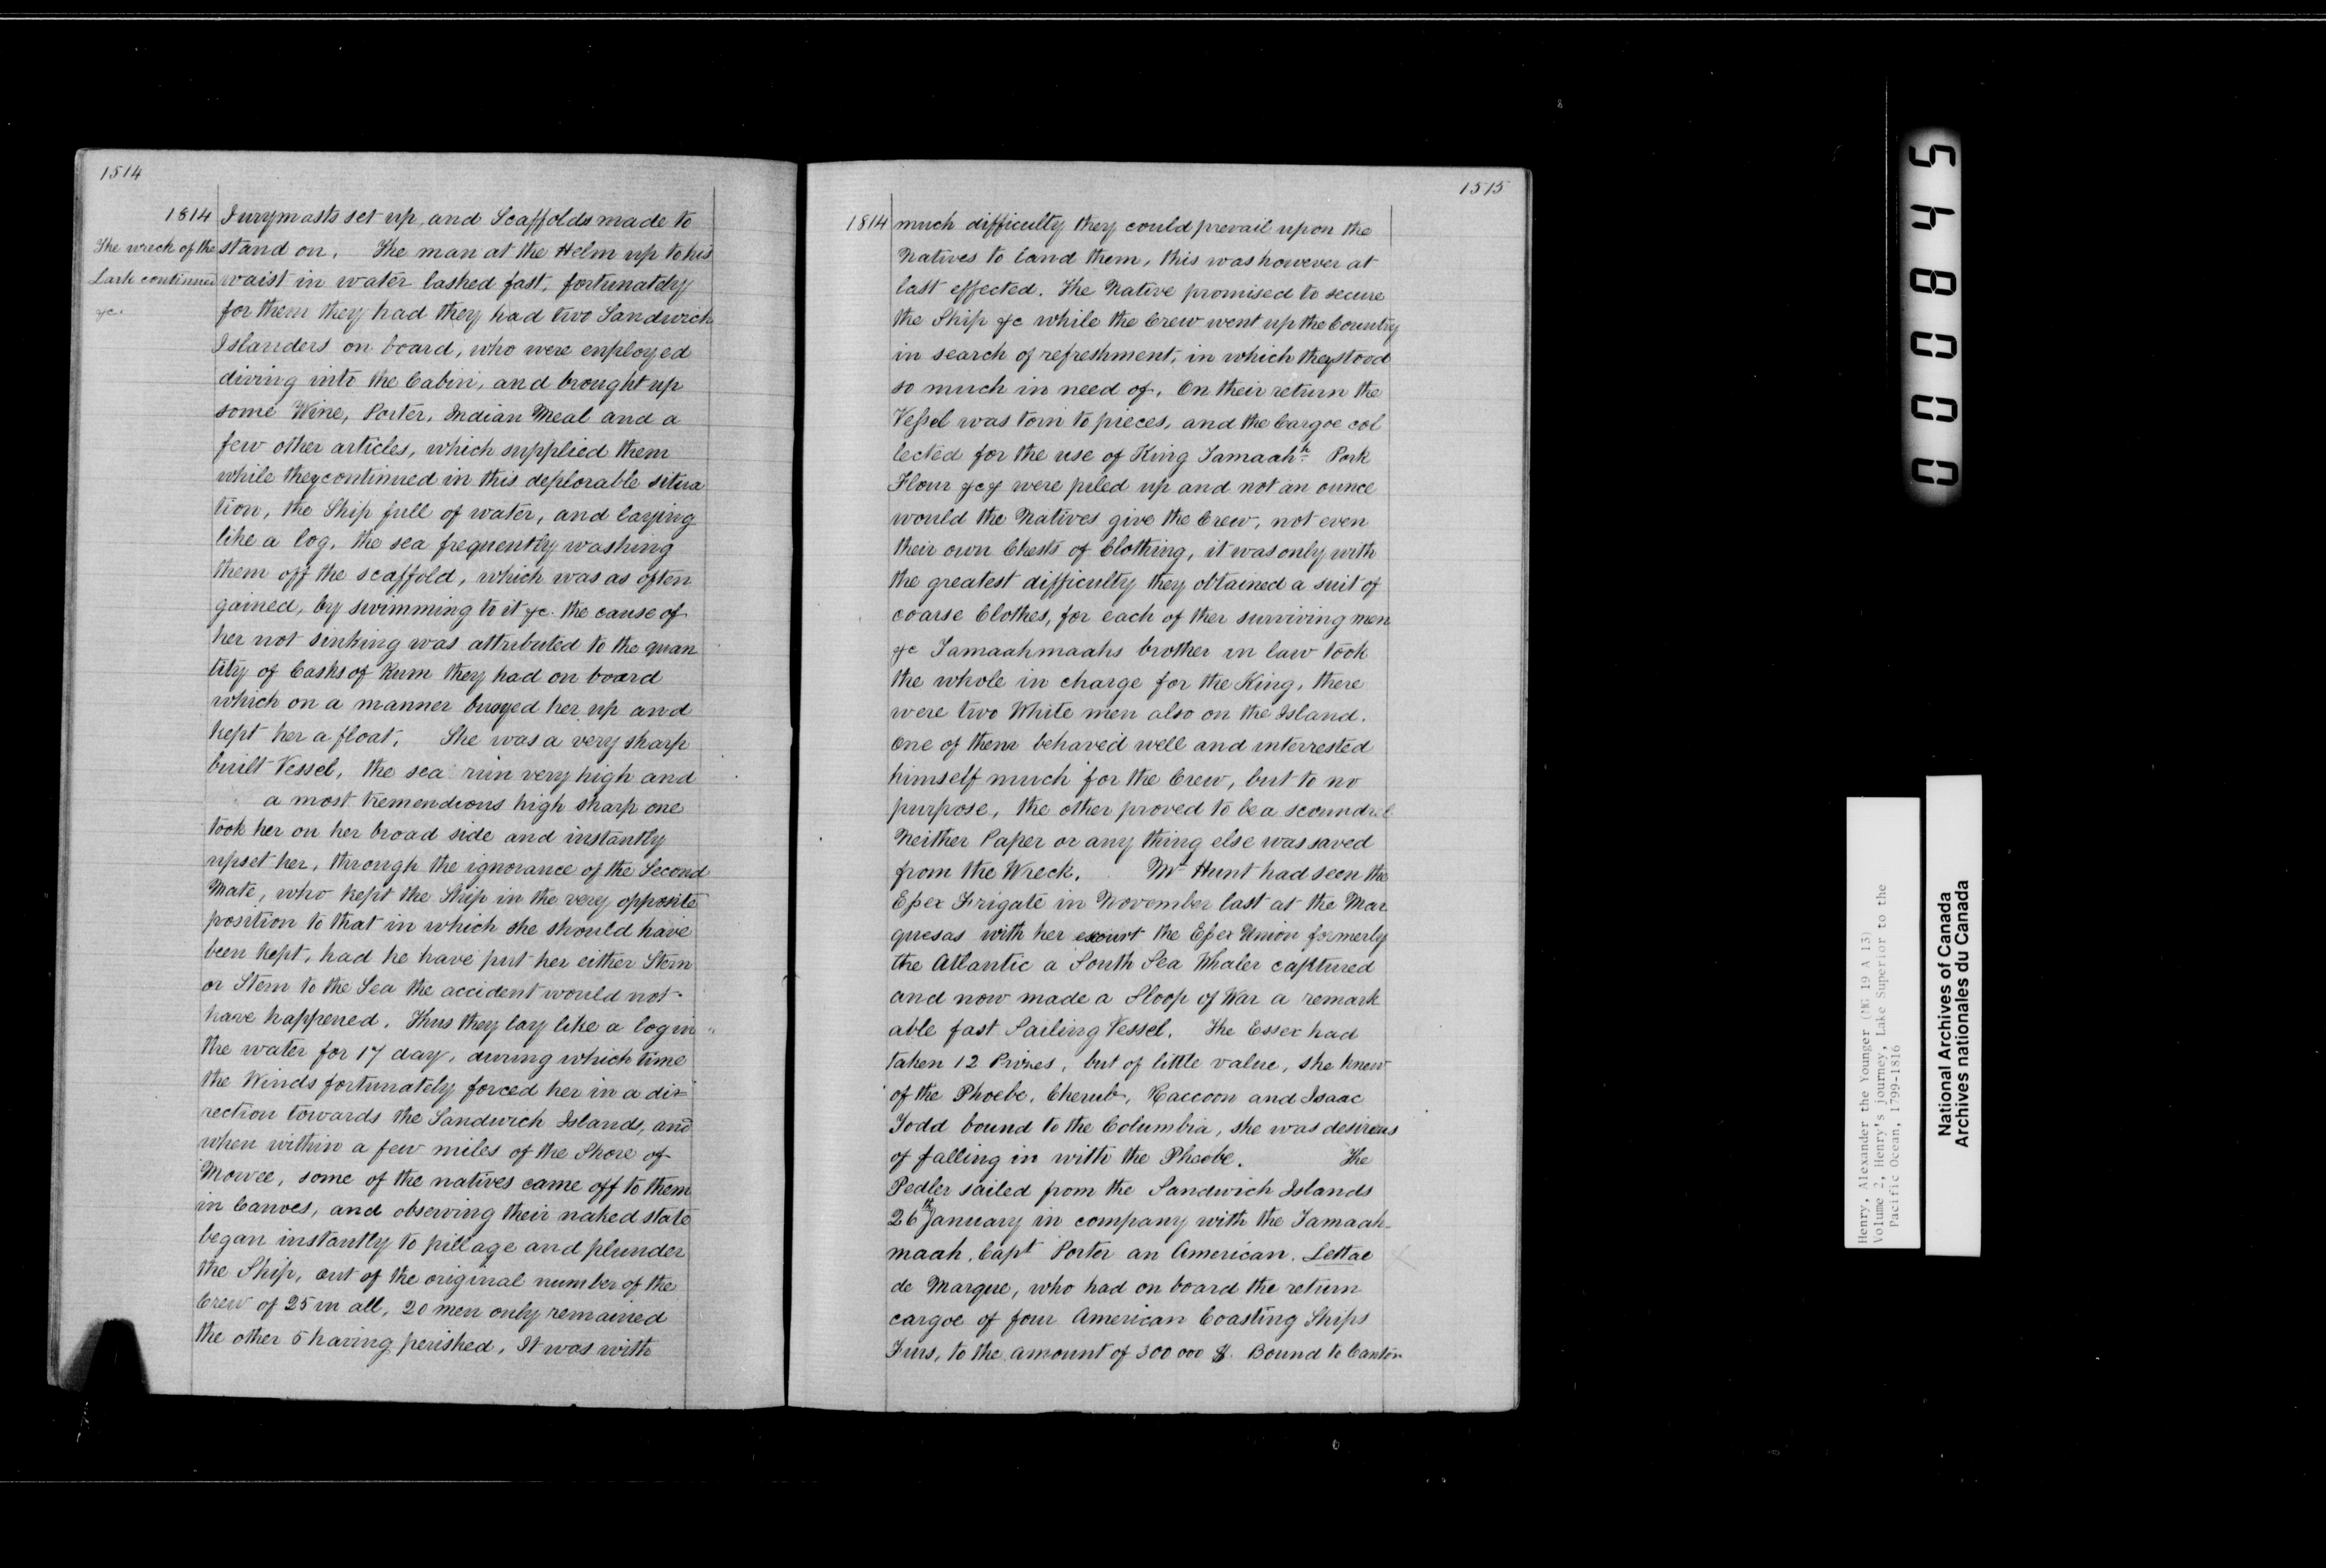 1514
1814
The wreck of the
Lark continued
&c.
Jurymasts set up, and Scaffolds made to
stand on. The man at the Helm up to his
waist in water lashed fast, fortunately
for them they had they had two Sandwich
Islanders on board, who were employed
diving into the Cabin, and brought up
some Wine, Porter, Indian Meal and a
few other articles, which supplied them
while they continued in this deplorable situa
tion, the Ship full of water, and laying
like a log, the sea frequently washing
them off the scaffold, which was as often
gained, by swimming to it &c. the cause of
her not sinking was attributed to the quan
tity of Casks of Rum they had on board
which on a manner buoyed her up and
kept her a float. She was a very sharp
built Vessel, the sea run very high and
a most tremendious high sharp one
took her on her broad side and instantly
upset her, through the ignorance of the Second
Mate, who kept the Ship in the very opposite
position to that in which she should have
been kept, had he have put her either Stern
or Stem to the Sea the accident would not
have happened. Thus they lay like a log in
the water for 17 day, during which time
the Winds fortunately forced her in a di
rection towards the Sandwich Islands, and
when within a few miles of the Shore of
Mowee, some of the natives came off to them
in Canoes, and observing their naked state
began instantly to pillage and plunder
the Ship, out of the original number of the
Crew of 25 in all, 20 men only remained
the other 5 having perished, It was with
1515
1814
much difficulty they could prevail upon the
Natives to land them, this was however at
last effected. The Native promised to secure
the Ship &c while the Crew went up the Country
in search of refreshment, in which they stood
so much in need of. On their return the
Vessel was torn to pieces, and the Cargoe col
lected for the use of King Tamaahh. Pork
Flour &c &c were piled up and not an ounce
would the Natives give the Crew, not even
their own Chests of Clothing, it was only with
the greatest difficulty they obtained a suit of
coarse Clothes, for each of ther surviving men
&c Tamaahmaahs brother in law took
the whole in charge for the King, there
were two White men also on the Island.
One of them behaved well and interrested
himself much for the Crew, but to no
purpose, the other proved to be a scoundrel
Neither Paper or any thing else was saved
from the Wreck. Mr Hunt had seen the
Essex Frigate in November last at the Mar
quesas with her escourt the Essex Union formerly
the Atlantic a South Sea Whaler captured
and now made a Sloop of War a remark
able fast Sailing Vessel. The Essex had
taken 12 Prizes, but of little value, she knew
of the Phoebe, Cherub, Raccoon and Isaac
Todd bound to the Columbia, she was desireus
of falling in with the Phoebe. The
Pedler sailed from the Sandwich Islands
26th January in company with the Tamaah-
maah, Capt Porter an American. Lettae
de Marque, who had on board the return
cargoe of four American Coasting Ships
Furs, to the amount of 300 000 $. Bound to Canton
000845
Henry, Alexander the Younger (MG 19 A 13)
Volume 2, Henry's journey, Lake Superior to the
Pacific Ocean, 1799-1816
National Archives of Canada
Archives nationales du Canada